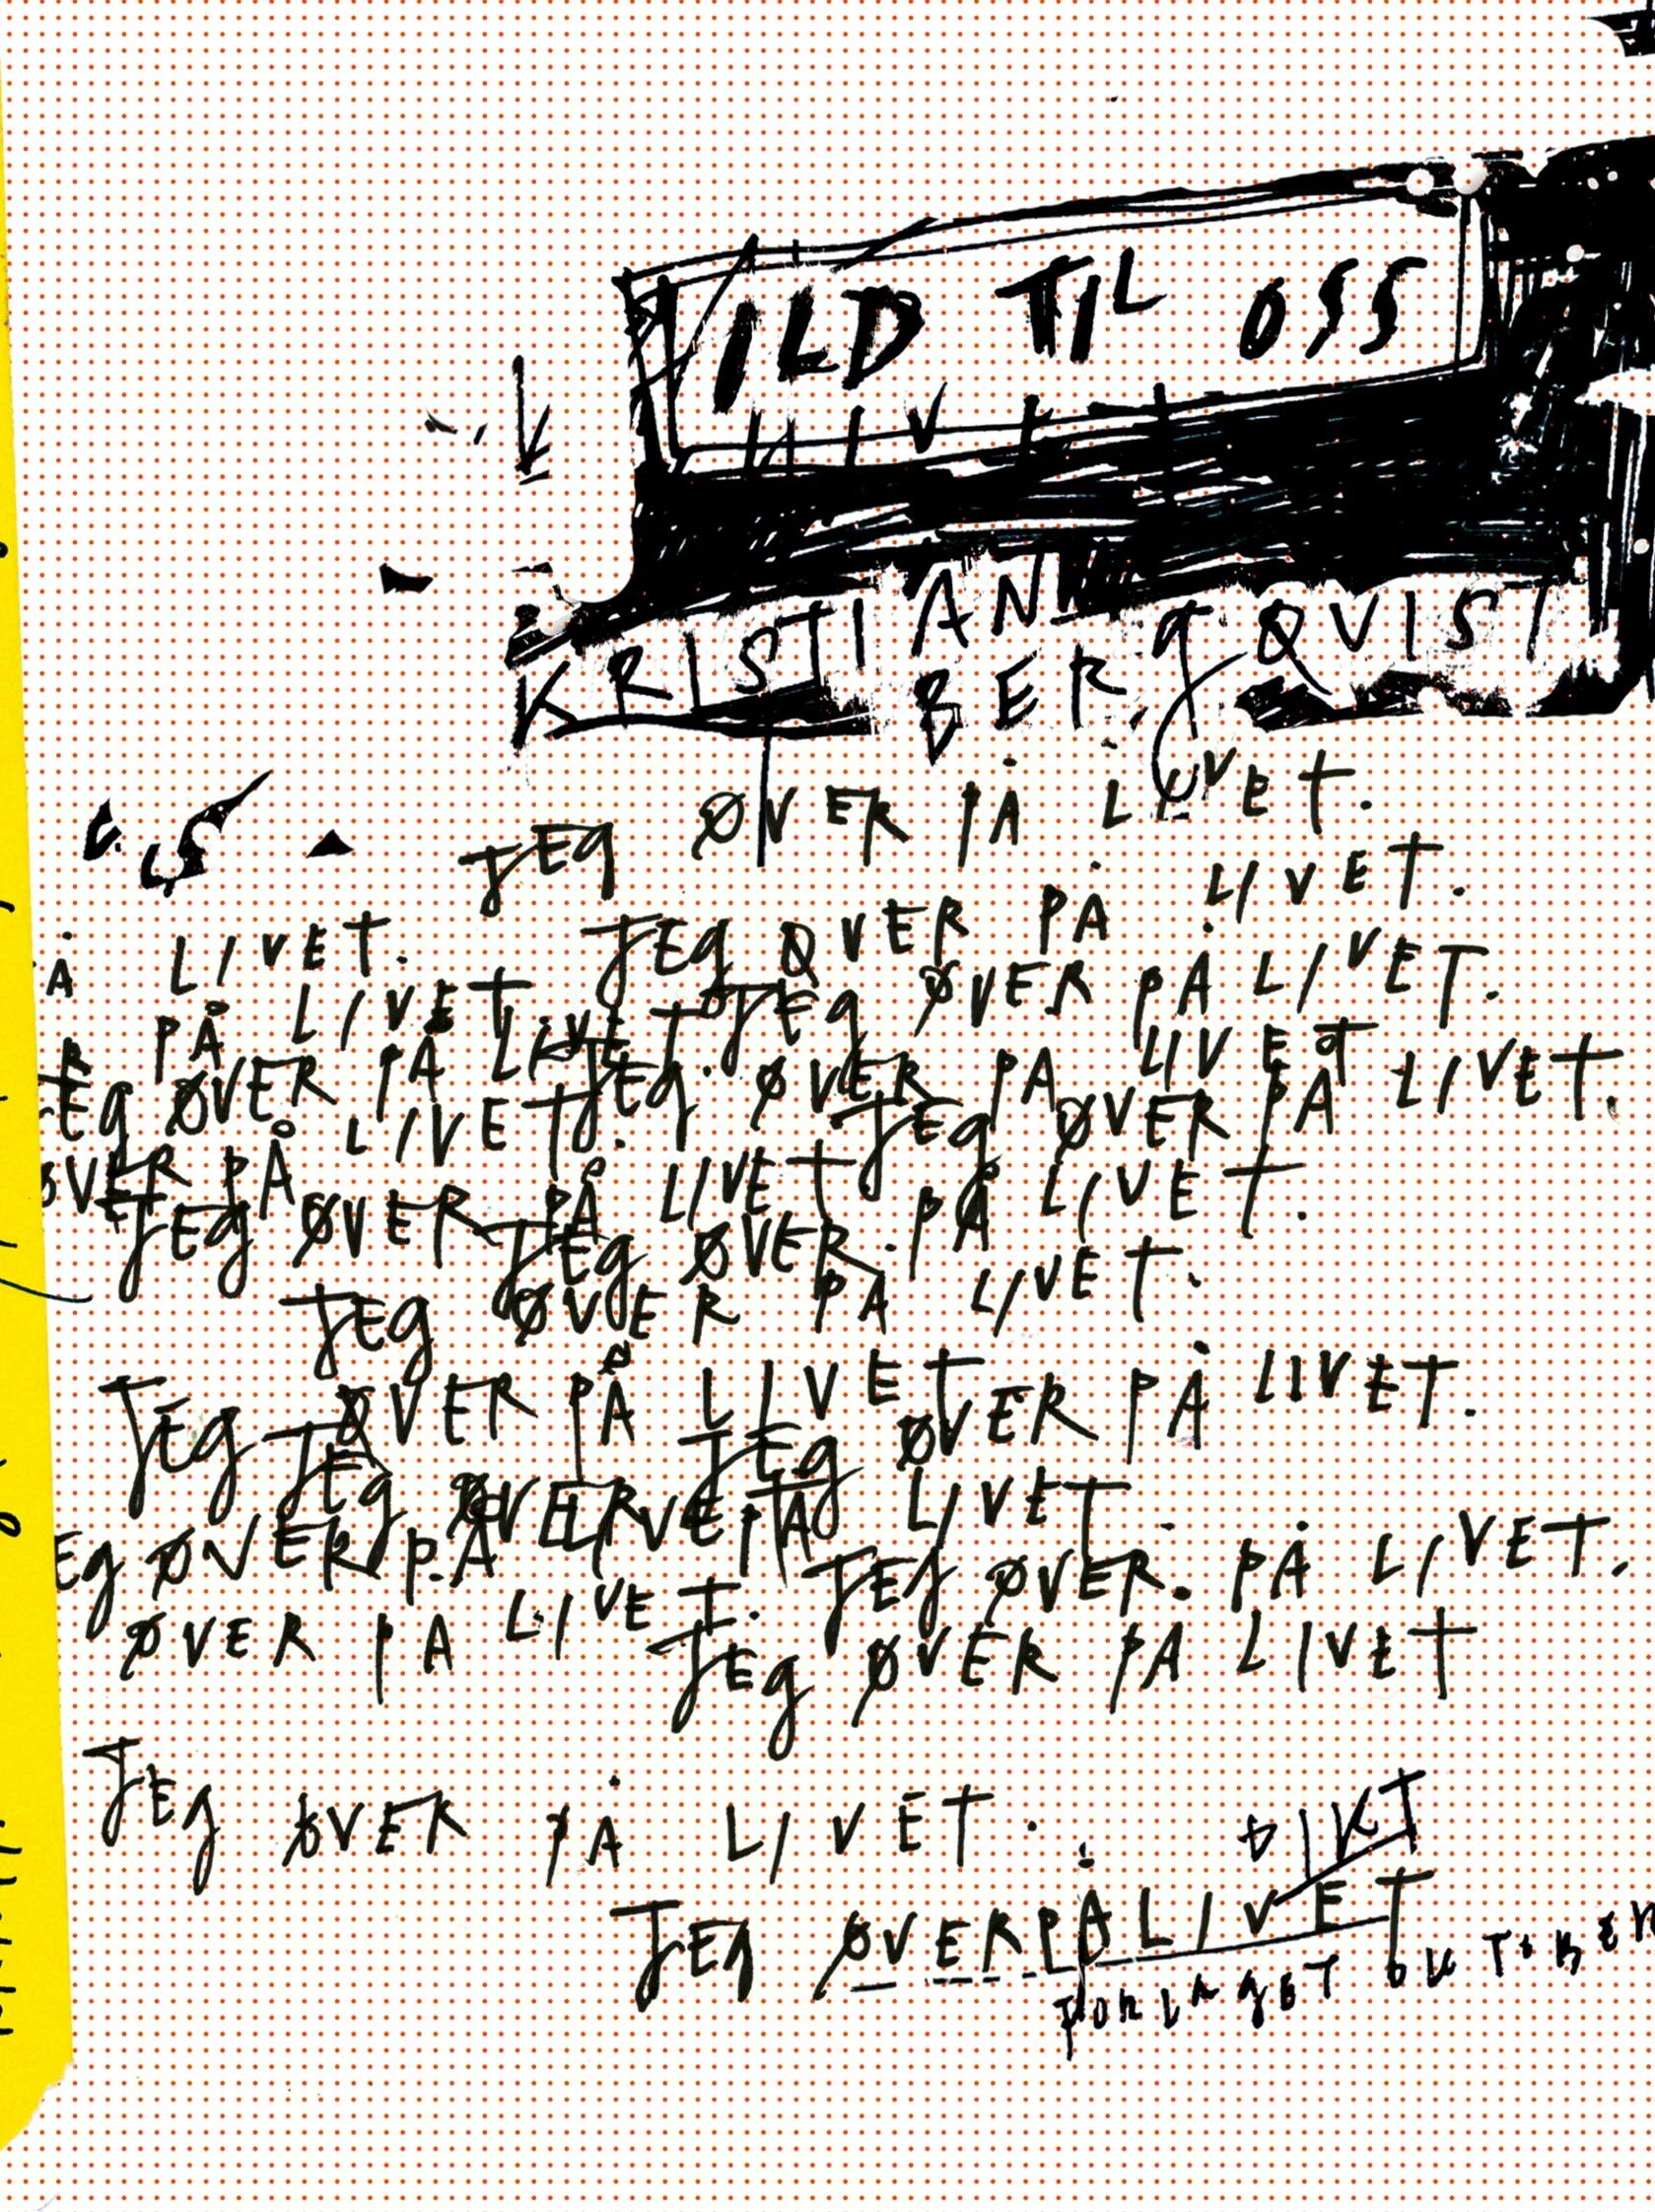 ILD TIL OSS
KRISTIAN
BERGQVIST
JEG ØVER PÅ LIVET.
JEG ØVER PÅ LIVET.
Å LIVET.
JEG ØVER PÅ LIVET.
PÅ LIVET
JEG ØVER PÅ LIVET
EG ØVER PÅ LIVET
JEG ØVER PÅ LIVET.
LIVET.
ØVER PÅ
JEG ØVER PÅ LIVET
JEG ØVER PÅ LIVET.
JEG ØVER PÅ LIVET.
JEG ØVER PÅ LIVET
JEG ØVER PÅ LIVET.
JEG ØVER PÅ LIVET
EG ØVER PÅ
JEG ØVER PÅ LIVET.
ØVER PÅ LIVET.
JEG ØVER PÅ LIVET
JEG ØVER PÅ LIVET.
DIKT
JEG ØVER PÅ LIVET
FORLAGET OKTOBER